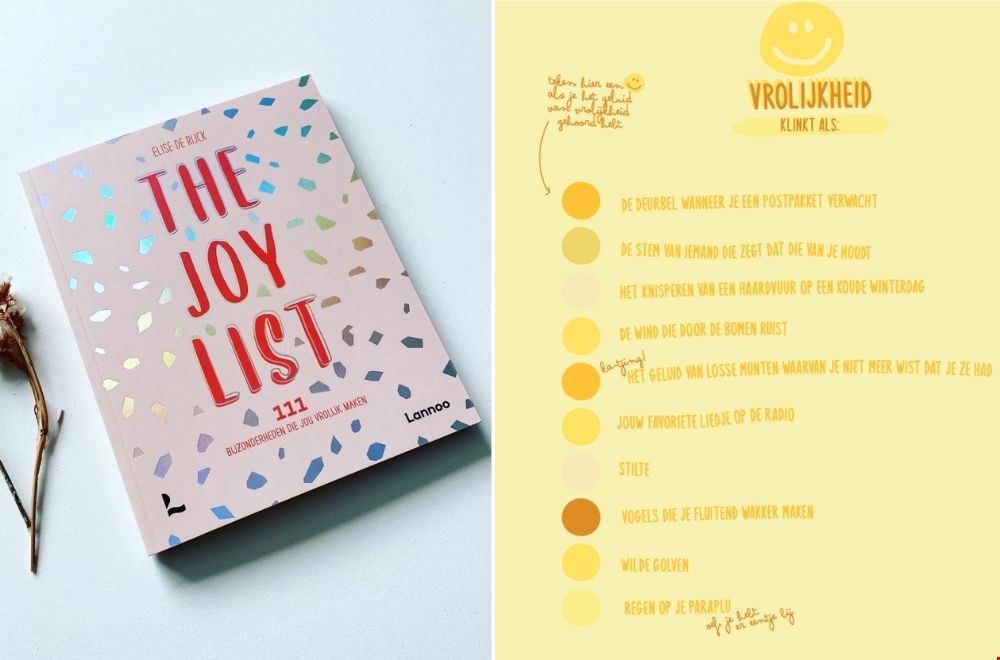 ELISE DE RIJCK
THE
JOY
LIST
111
BIJZONDERHEDEN DIE JOU VROLIJK MAKEN
Lannoo
teken hier een
als je het geluid
van vrolijkheid
gehoord hebt
VROLIJKHEID
KLINKT ALS:
DE DEURBEL WANNEER JE EEN POSTPAKKET VERWACHT
DE STEM VAN IEMAND DIE ZEGT DAT DIE VAN JE HOUDT
HET KNISPEREN VAN EEN HAARDVUUR OP EEN KOUDE WINTERDAG
DE WIND DIE DOOR DE BOMEN RUIST
ka-tjing!
HET GELUID VAN LOSSE MUNTEN WAARVAN JE NIET MEER WIST DAT JE ZE HAD
JOUW FAVORIETE LIEDJE OP DE RADIO
STILTE
VOGELS DIE JE FLUITEND WAKKER MAKEN
WILDE GOLVEN
REGEN OP JE PARAPLU
oef, je hebt
er eentje bij